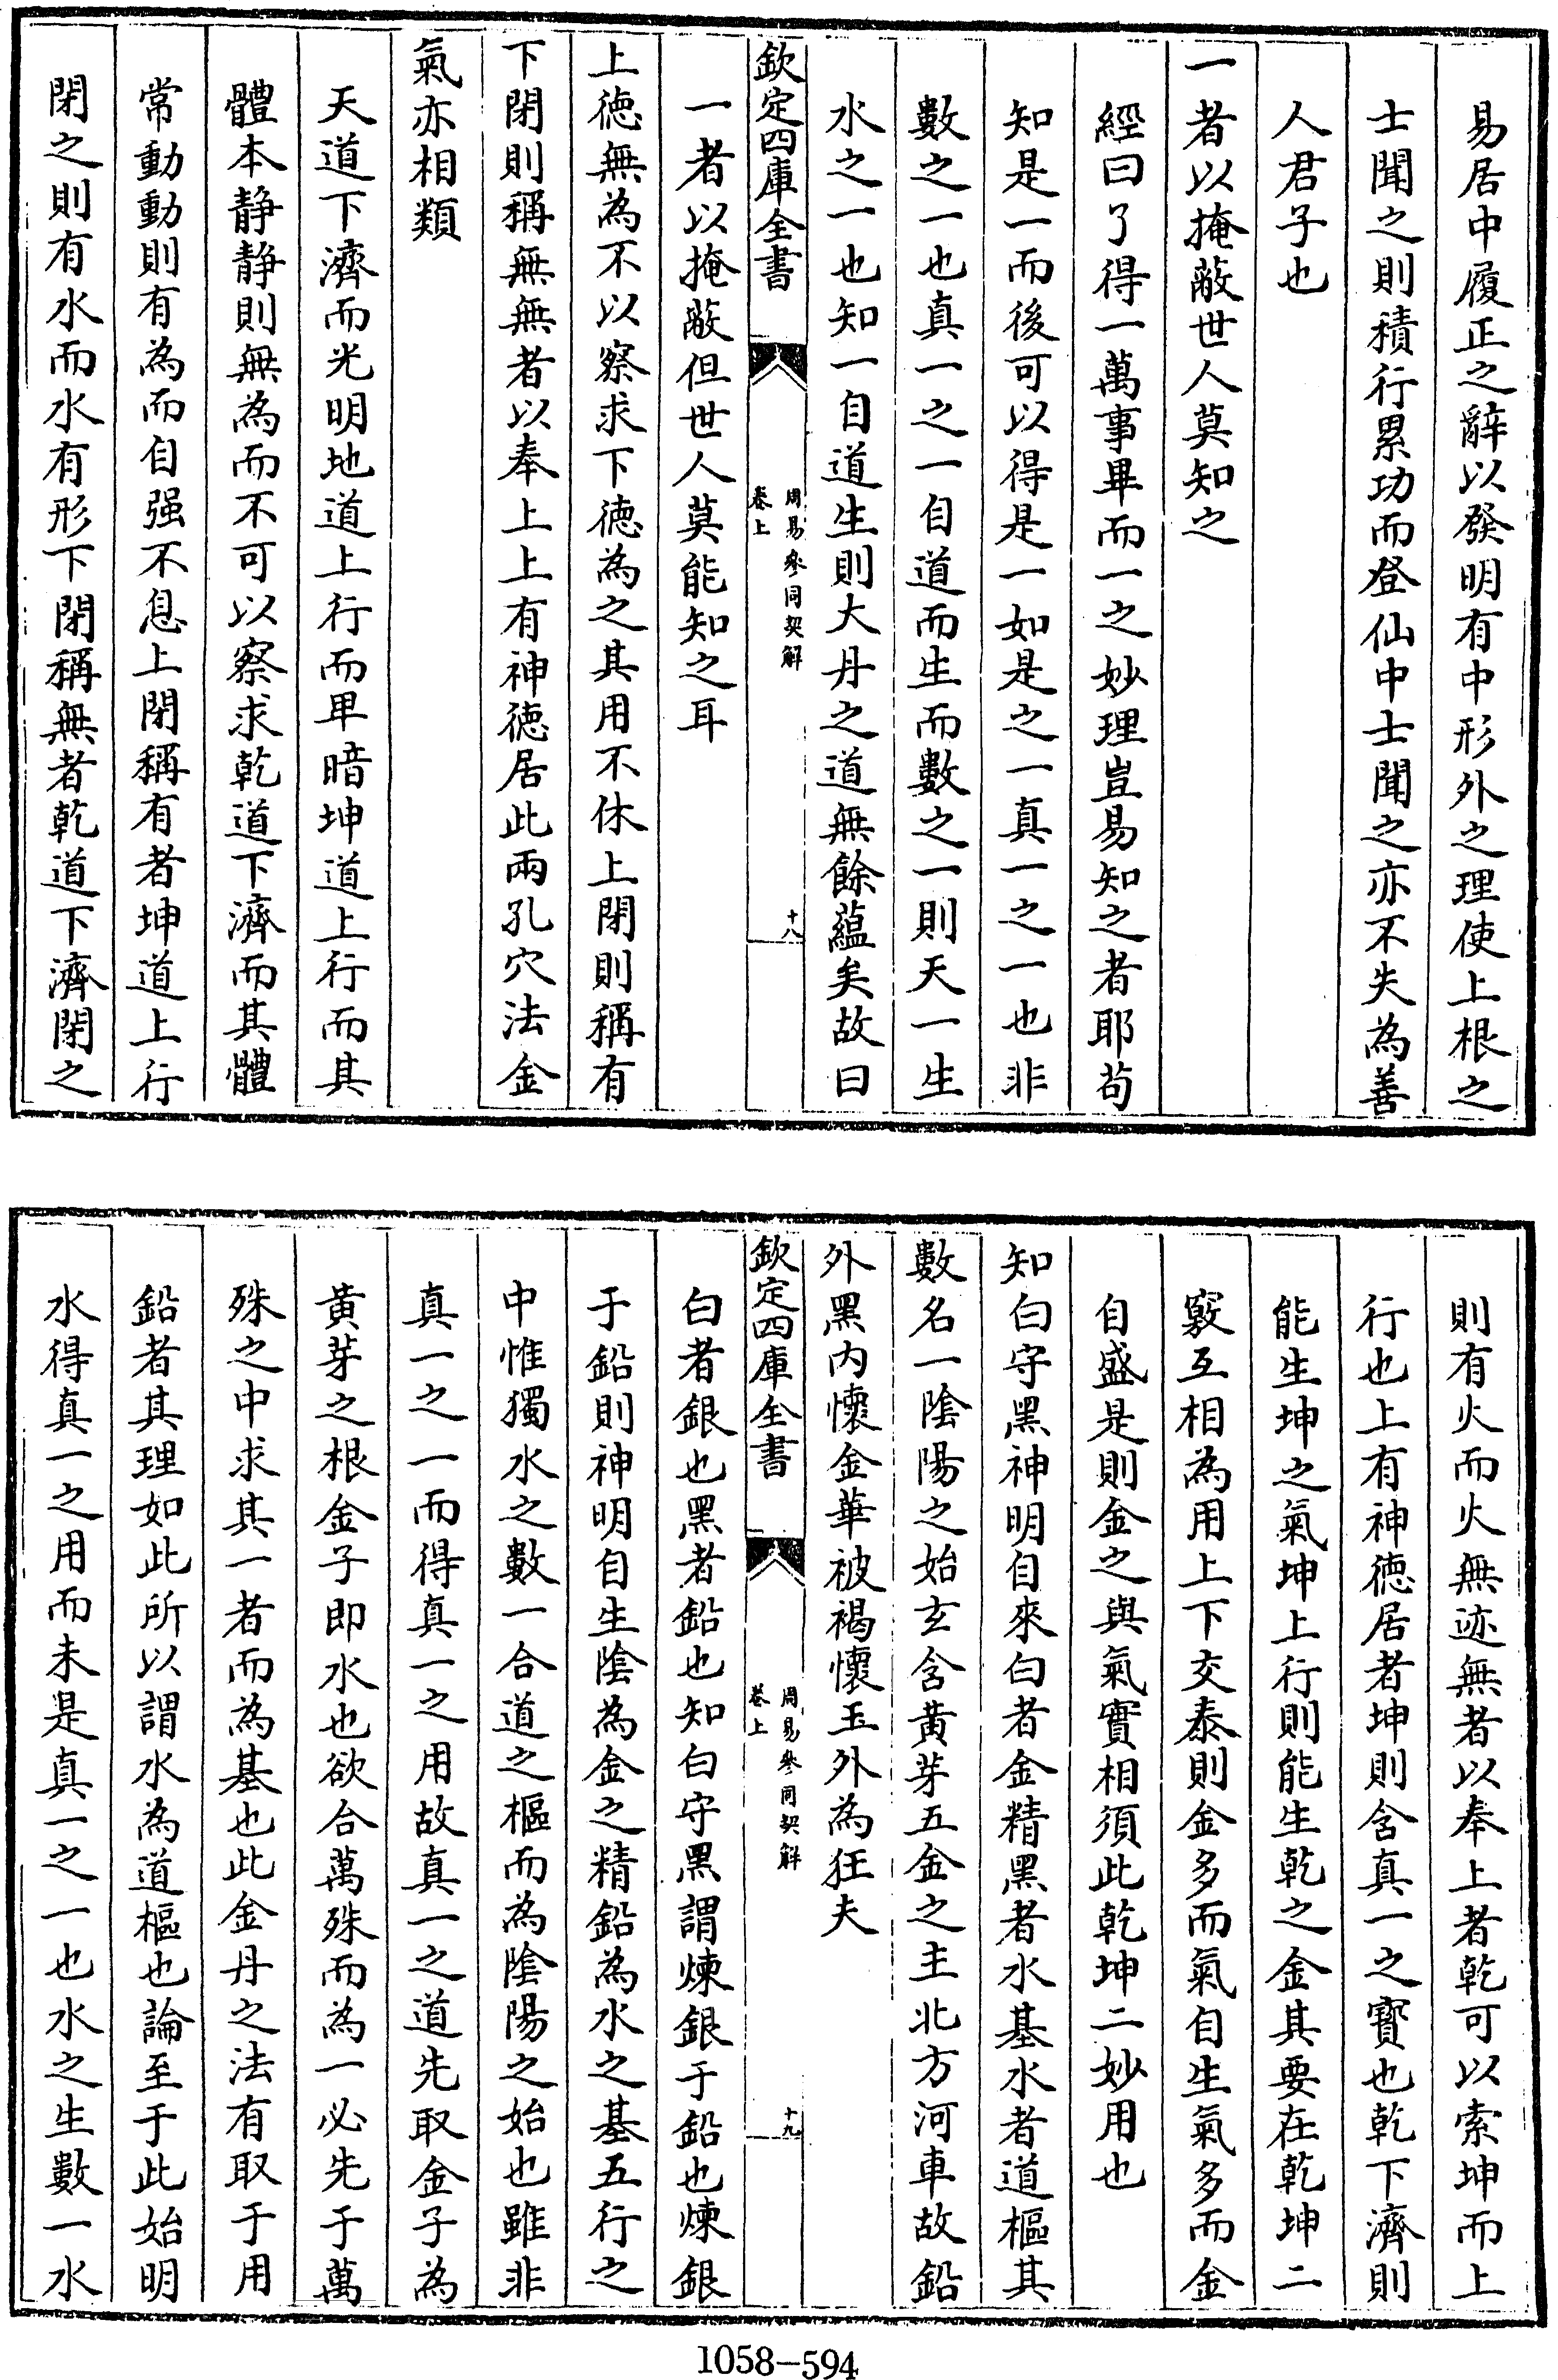 易居中履正之辭以發明有中形外之理使上根之
士聞之則積行累功而登仙中士聞之亦不失為善
人君子也
一者以掩蔽世人莫知之
經曰了得一萬事畢而一之妙理豈易知之者耶茍
知是一而後可以得是一如是之一真一之一也非
數之一也真一之一自道而生而數之一則天一生
水之一也知一自道生則大丹之道無餘蘊矣故曰
欽定四庫全書
周易參同契解
卷上
十八
一者以掩蔽但世人莫能知之耳
上徳無為不以察求下徳為之其用不休上閉則稱有
下閉則稱無無者以奉上上有神徳居此兩孔穴法金
氣亦相類
天道下濟而光明地道上行而卑暗坤道上行而其
體本静静則無為而不可以察求乾道下濟而其體
常動動則有為而自强不息上閉稱有者坤道上行
閉之則有水而水有形下閉稱無者乾道下濟閉之
則有火而火無迹無者以奉上者乾可以索坤而上
行也上有神徳居者坤則含真一之寶也乾下濟則
能生坤之氣坤上行則能生乾之金其要在乾坤二
竅互相為用上下交泰則金多而氣自生氣多而金
自盛是則金之與氣實相須此乾坤二妙用也
知白守黑神明自來白者金精黑者水基水者道樞其
數名一陰陽之始玄含黄芽五金之主北方河車故鉛
外黑内懷金華被褐懷玉外為狂夫
欽定四庫全書
周易參同契解
卷上
十九
白者銀也黑者鉛也知白守黑謂煉銀于鉛也煉銀
于鉛則神明自生陰為金之精鉛為水之基五行之
中惟獨水之數一合道之樞而為陰陽之始也雖非
真一之一而得真一之用故真一之道先取金子為
黄芽之根金子即水也欲合萬殊而為一必先于萬
殊之中求其一者而為基也此金丹之法有取于用
鉛者其理如此所以謂水為道樞也論至于此始明
水得真一之用而未是真一之一也水之生數一水
1058-594